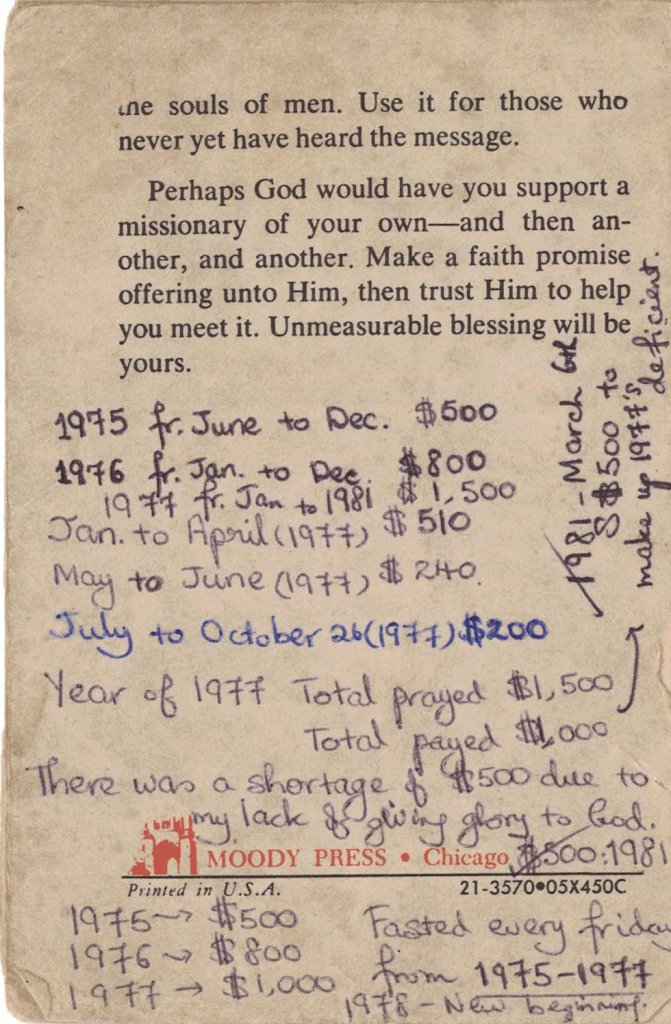 the souls of men. Use it for those who
never yet have heard the message.
Perhaps God would have you support a
missionary of your own—and then an-
other, and another. Make a faith promise
offering unto Him, then trust Him to help
you meet it. Unmeasurable blessing will be
yours.
1975 fr. June to Dec. $500
1976 fr. Jan. to Dec. $800
1977 fr. Jan to 1981 $1,500
Jan. to April (1977) $510
May to June (1977) $240.
July to October 26 (1977) $200
Year of 1977 Total prayed $1,500
Total payed $1,000
There was a shortage of $500 due to
my lack of giving glory to God.
$500:1981
1981 - March 6th
$500 to
make up 1977's
deficient.
MOODY PRESS • Chicago
Printed in U.S.A. 21-3570•05X450C
1975 → $500
1976 → $800
1977 → $1,000
Fasted every friday
from 1975-1977
1978 - New beginning.